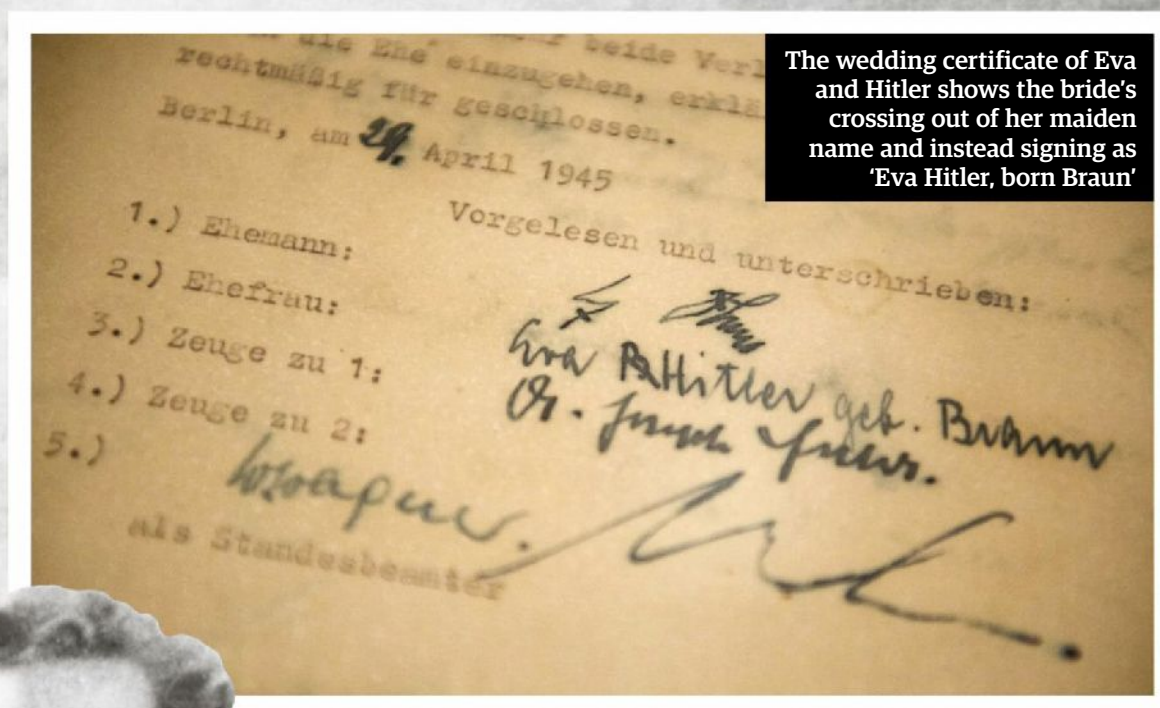 The wedding certificate of Eva
and Hitler shows the bride's
crossing out of her maiden
name and instead signing as
‘Eva Hitler, born Braun’
die Ehe einzugehen,
rechtmäßig für geschlossen.
Berlin, am 29. April 1945
Vorgelesen und unterschrieben:
1.) Ehemann:
2.) Ehefrau:
Eva B Hitler geb. Braun
3.) Zeuge zu 1:
Dr.
4.) Zeuge zu 2:
5.)
als Standesbeamter